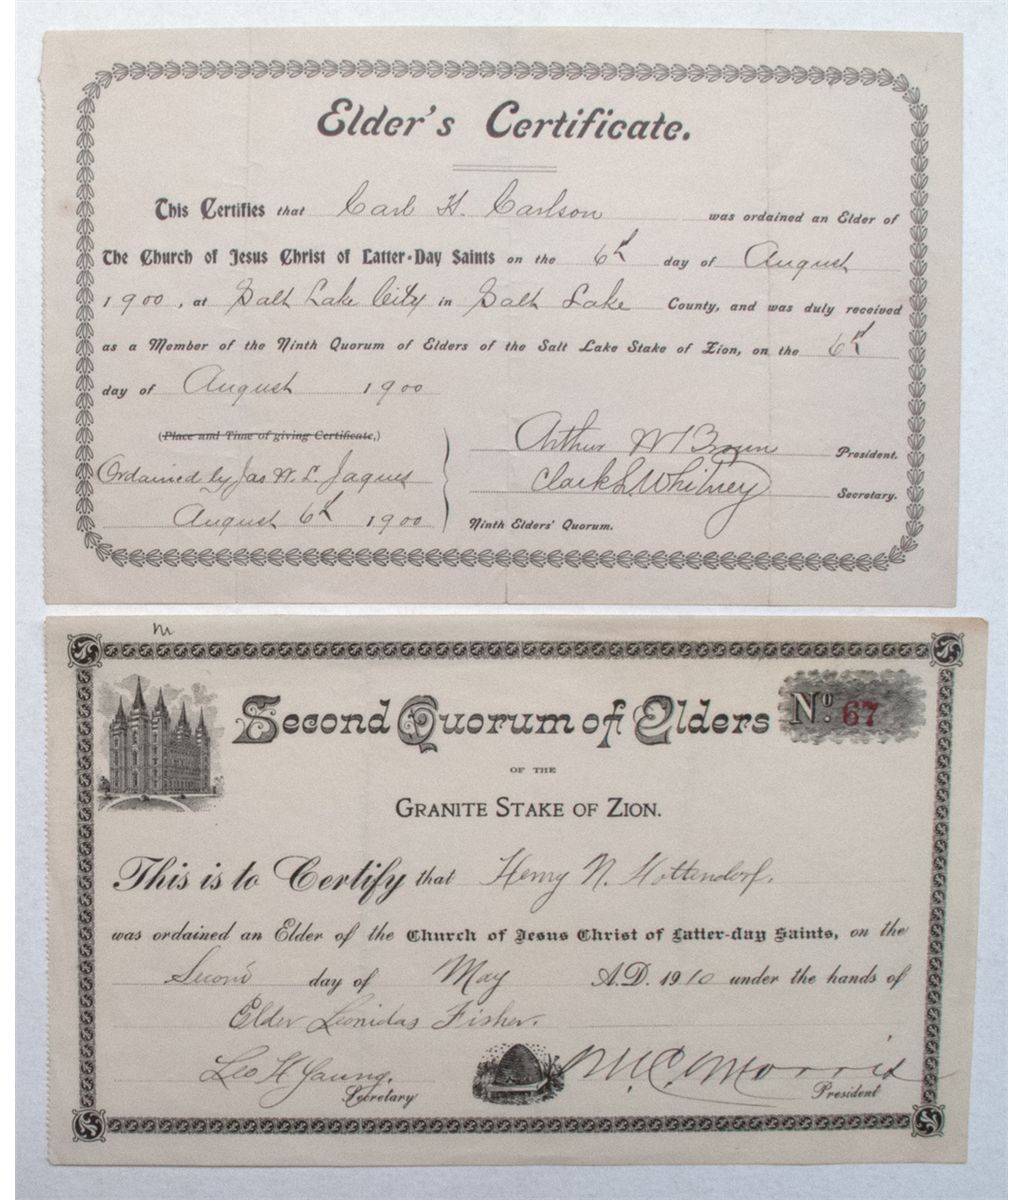 Elder's Certificate.
This Certifies that Carl H. Carlson was ordained an Elder of
The Church of Jesus Christ of Latter-Day Saints on the 6th day of August
1900, at Salt Lake City in Salt Lake County, and was duly received
as a Member of the Ninth Quorum of Elders of the Salt Lake Stake of Zion, on the 6th
day of August 1900
(Place and Time of giving Certificate,)
Ordained by Jas W. L. Jaques
August 6th 1900
Arthur W Brown President.
Clark L Whitney Secretary.
Ninth Elders' Quorum.
Second Quorum of Elders
No. 67
OF THE
GRANITE STAKE OF ZION.
This is to Certify that Henry N. Hottendorf,
was ordained an Elder of the Church of Jesus Christ of Latter-day Saints, on the
Second day of May A.D. 1910 under the hands of
Elder Leonidas Fisher.
Leo H Young,
Secretary
M. C. Morris
President